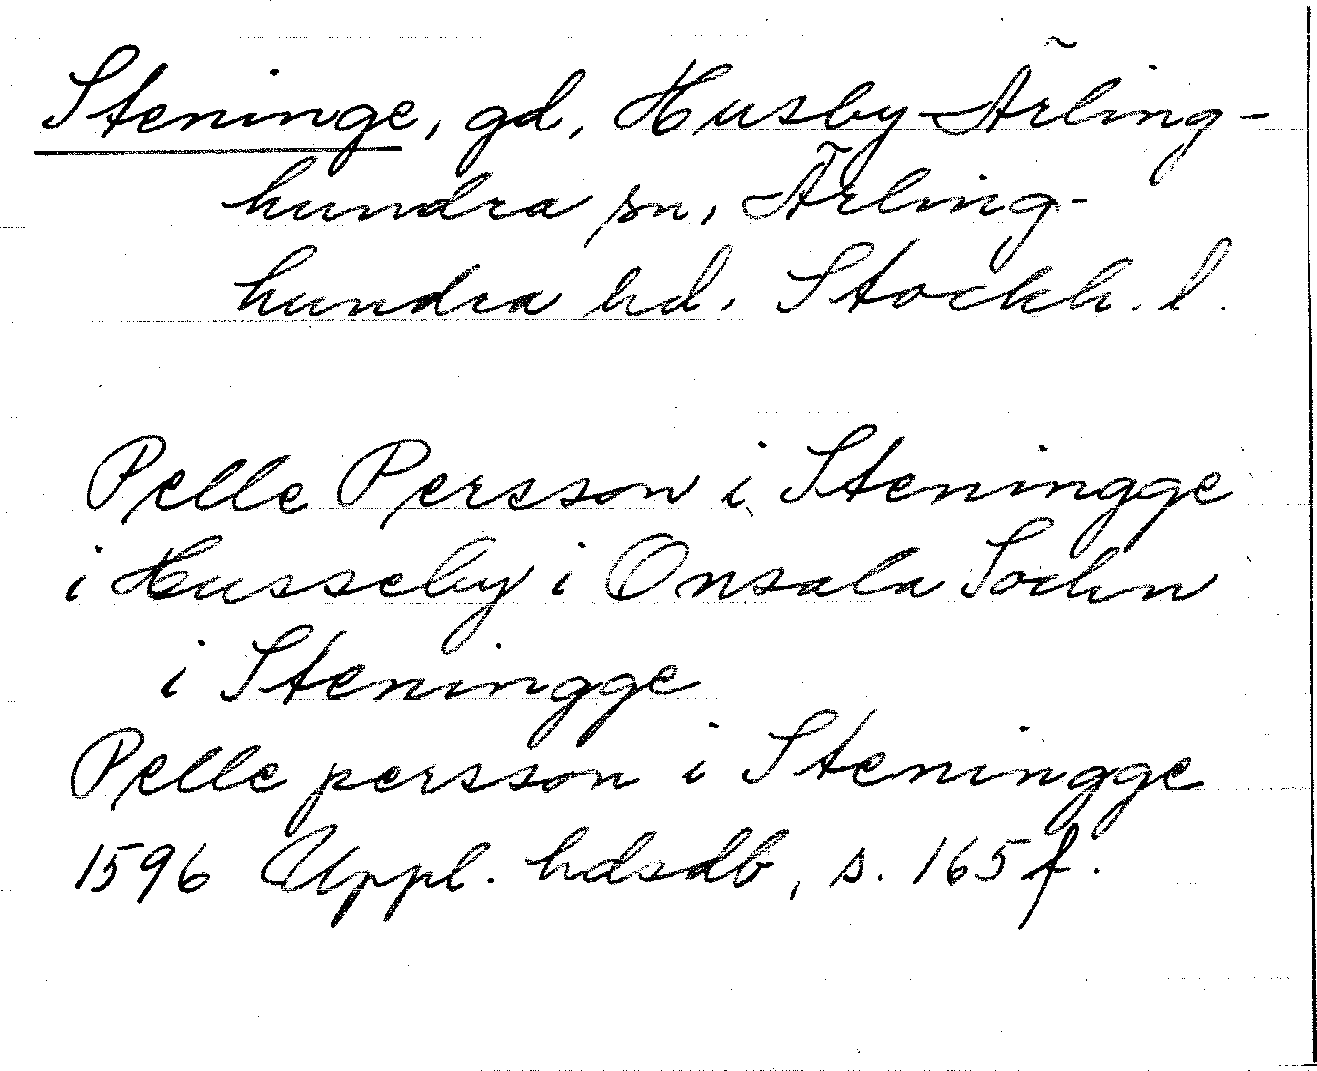 Steninge, gd, Husby-Ärling-
hundra sn, Ärling-
hundra hd. Stockh. l.
Pelle Persson i Steningge
i Husseby i Onsala Sochn
i Steningge
Pelle persson i Steningge
1596 Uppl. hdsdb, s. 165 f.